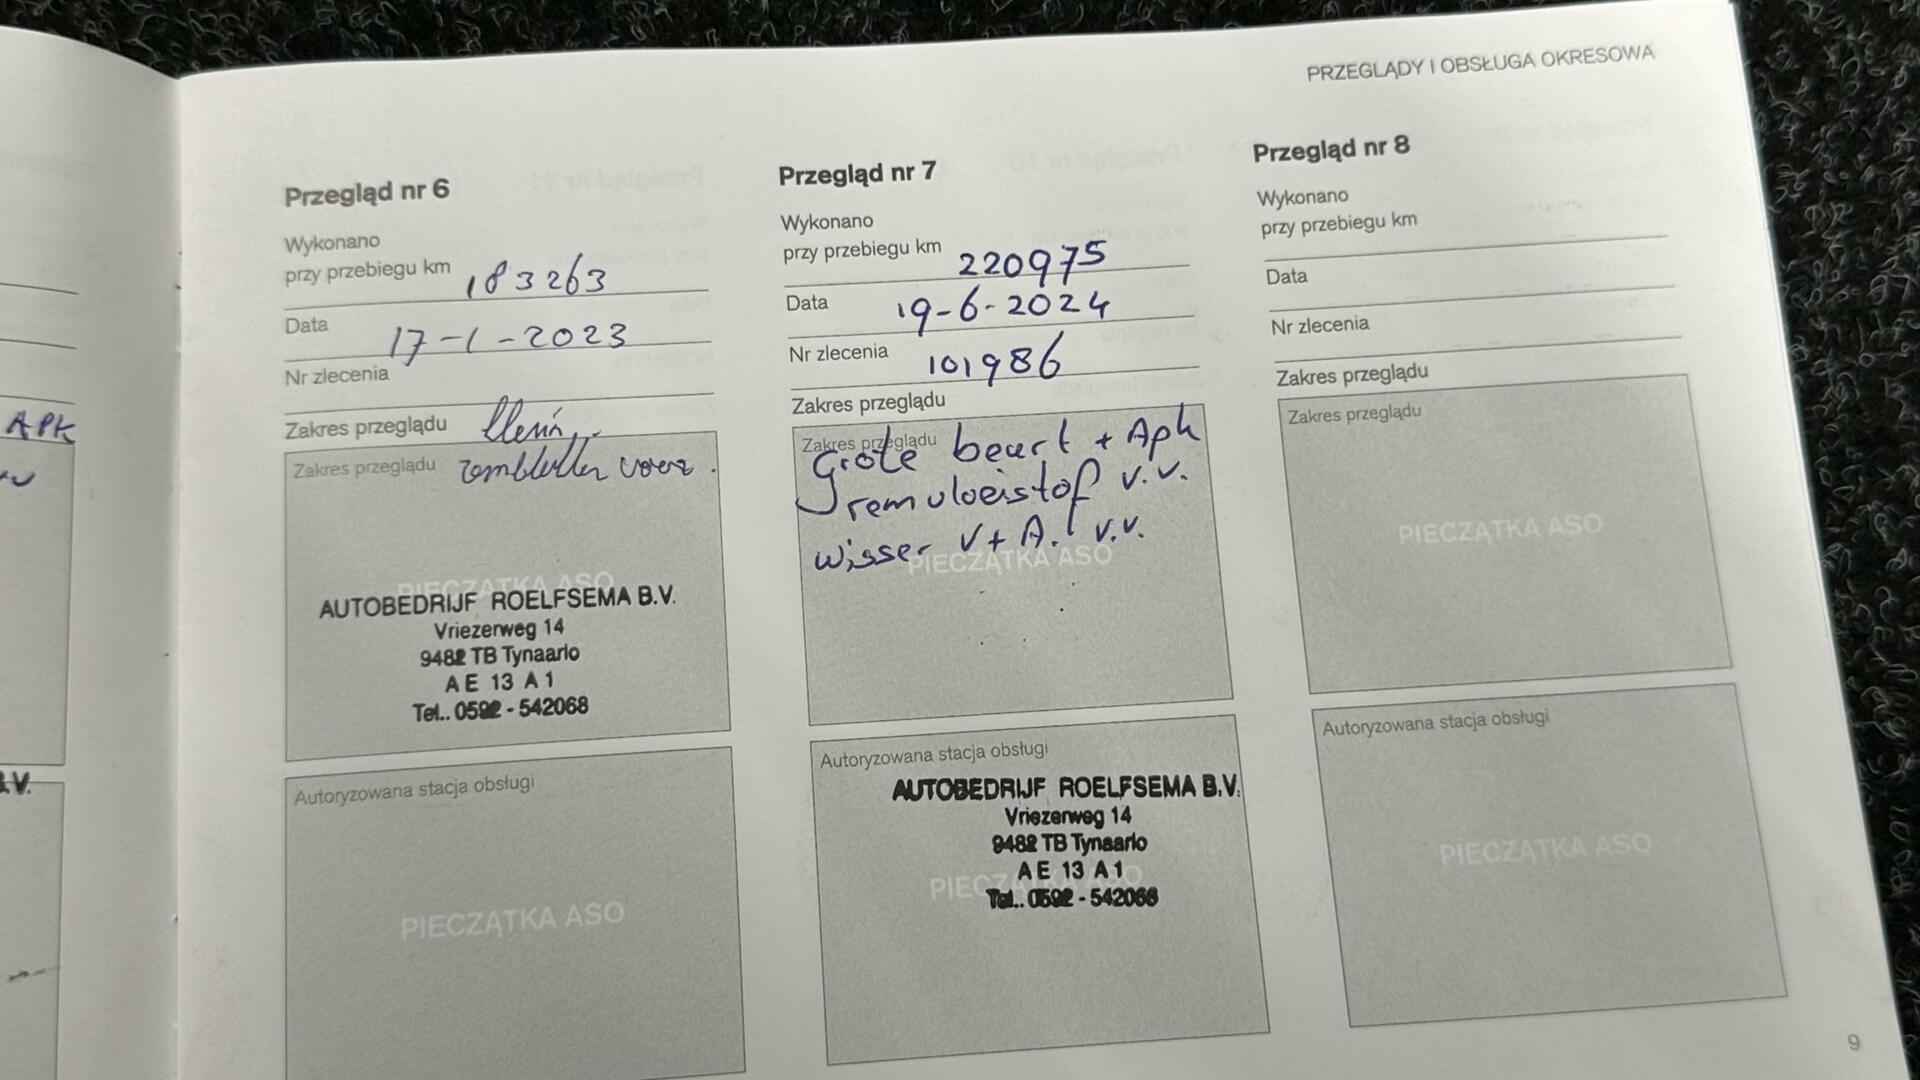 PRZEGLĄDY I OBSŁUGA OKRESOWA
APK
B.V.
Przegląd nr 6
Wykonano
przy przebiegu km 183263
Data 17-1-2023
Nr zlecenia
Zakres przeglądu
Zakres przeglądu voor.
PIECZĄTKA ASO
AUTOBEDRIJF ROELFSEMA B.V.
Vriezerweg 14
9482 TB Tynaarlo
AE 13 A1
Tel.. 0592 - 542068
Autoryzowana stacja obsługi
PIECZĄTKA ASO
Przegląd nr 7
Wykonano
przy przebiegu km 220975
Data 19-6-2024
Nr zlecenia 101986
Zakres przeglądu
Zakres przeglądu
Grote beurt + Apk
remvloeistof v.v.
wisser V + A. v.v.
PIECZĄTKA ASO
Autoryzowana stacja obsługi
AUTOBEDRIJF ROELFSEMA B.V.
Vriezerweg 14
9482 TB Tynaarlo
AE 13 A1
PIECZĄTKA ASO
Tel.. 0592 - 542068
Przegląd nr 8
Wykonano
przy przebiegu km
Data
Nr zlecenia
Zakres przeglądu
Zakres przeglądu
PIECZĄTKA ASO
Autoryzowana stacja obsługi
PIECZĄTKA ASO
9